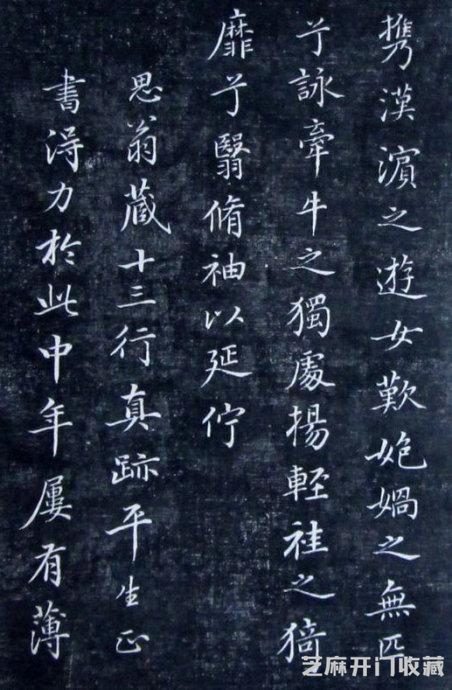 携漢濱之遊女歎㚿媧之無匹
兮詠牽牛之獨處揚輕袿之猗
靡兮翳脩袖以延佇
思翁蔵十三行真跡平生正
書得力於此中年屢有薄
芝麻开门收藏